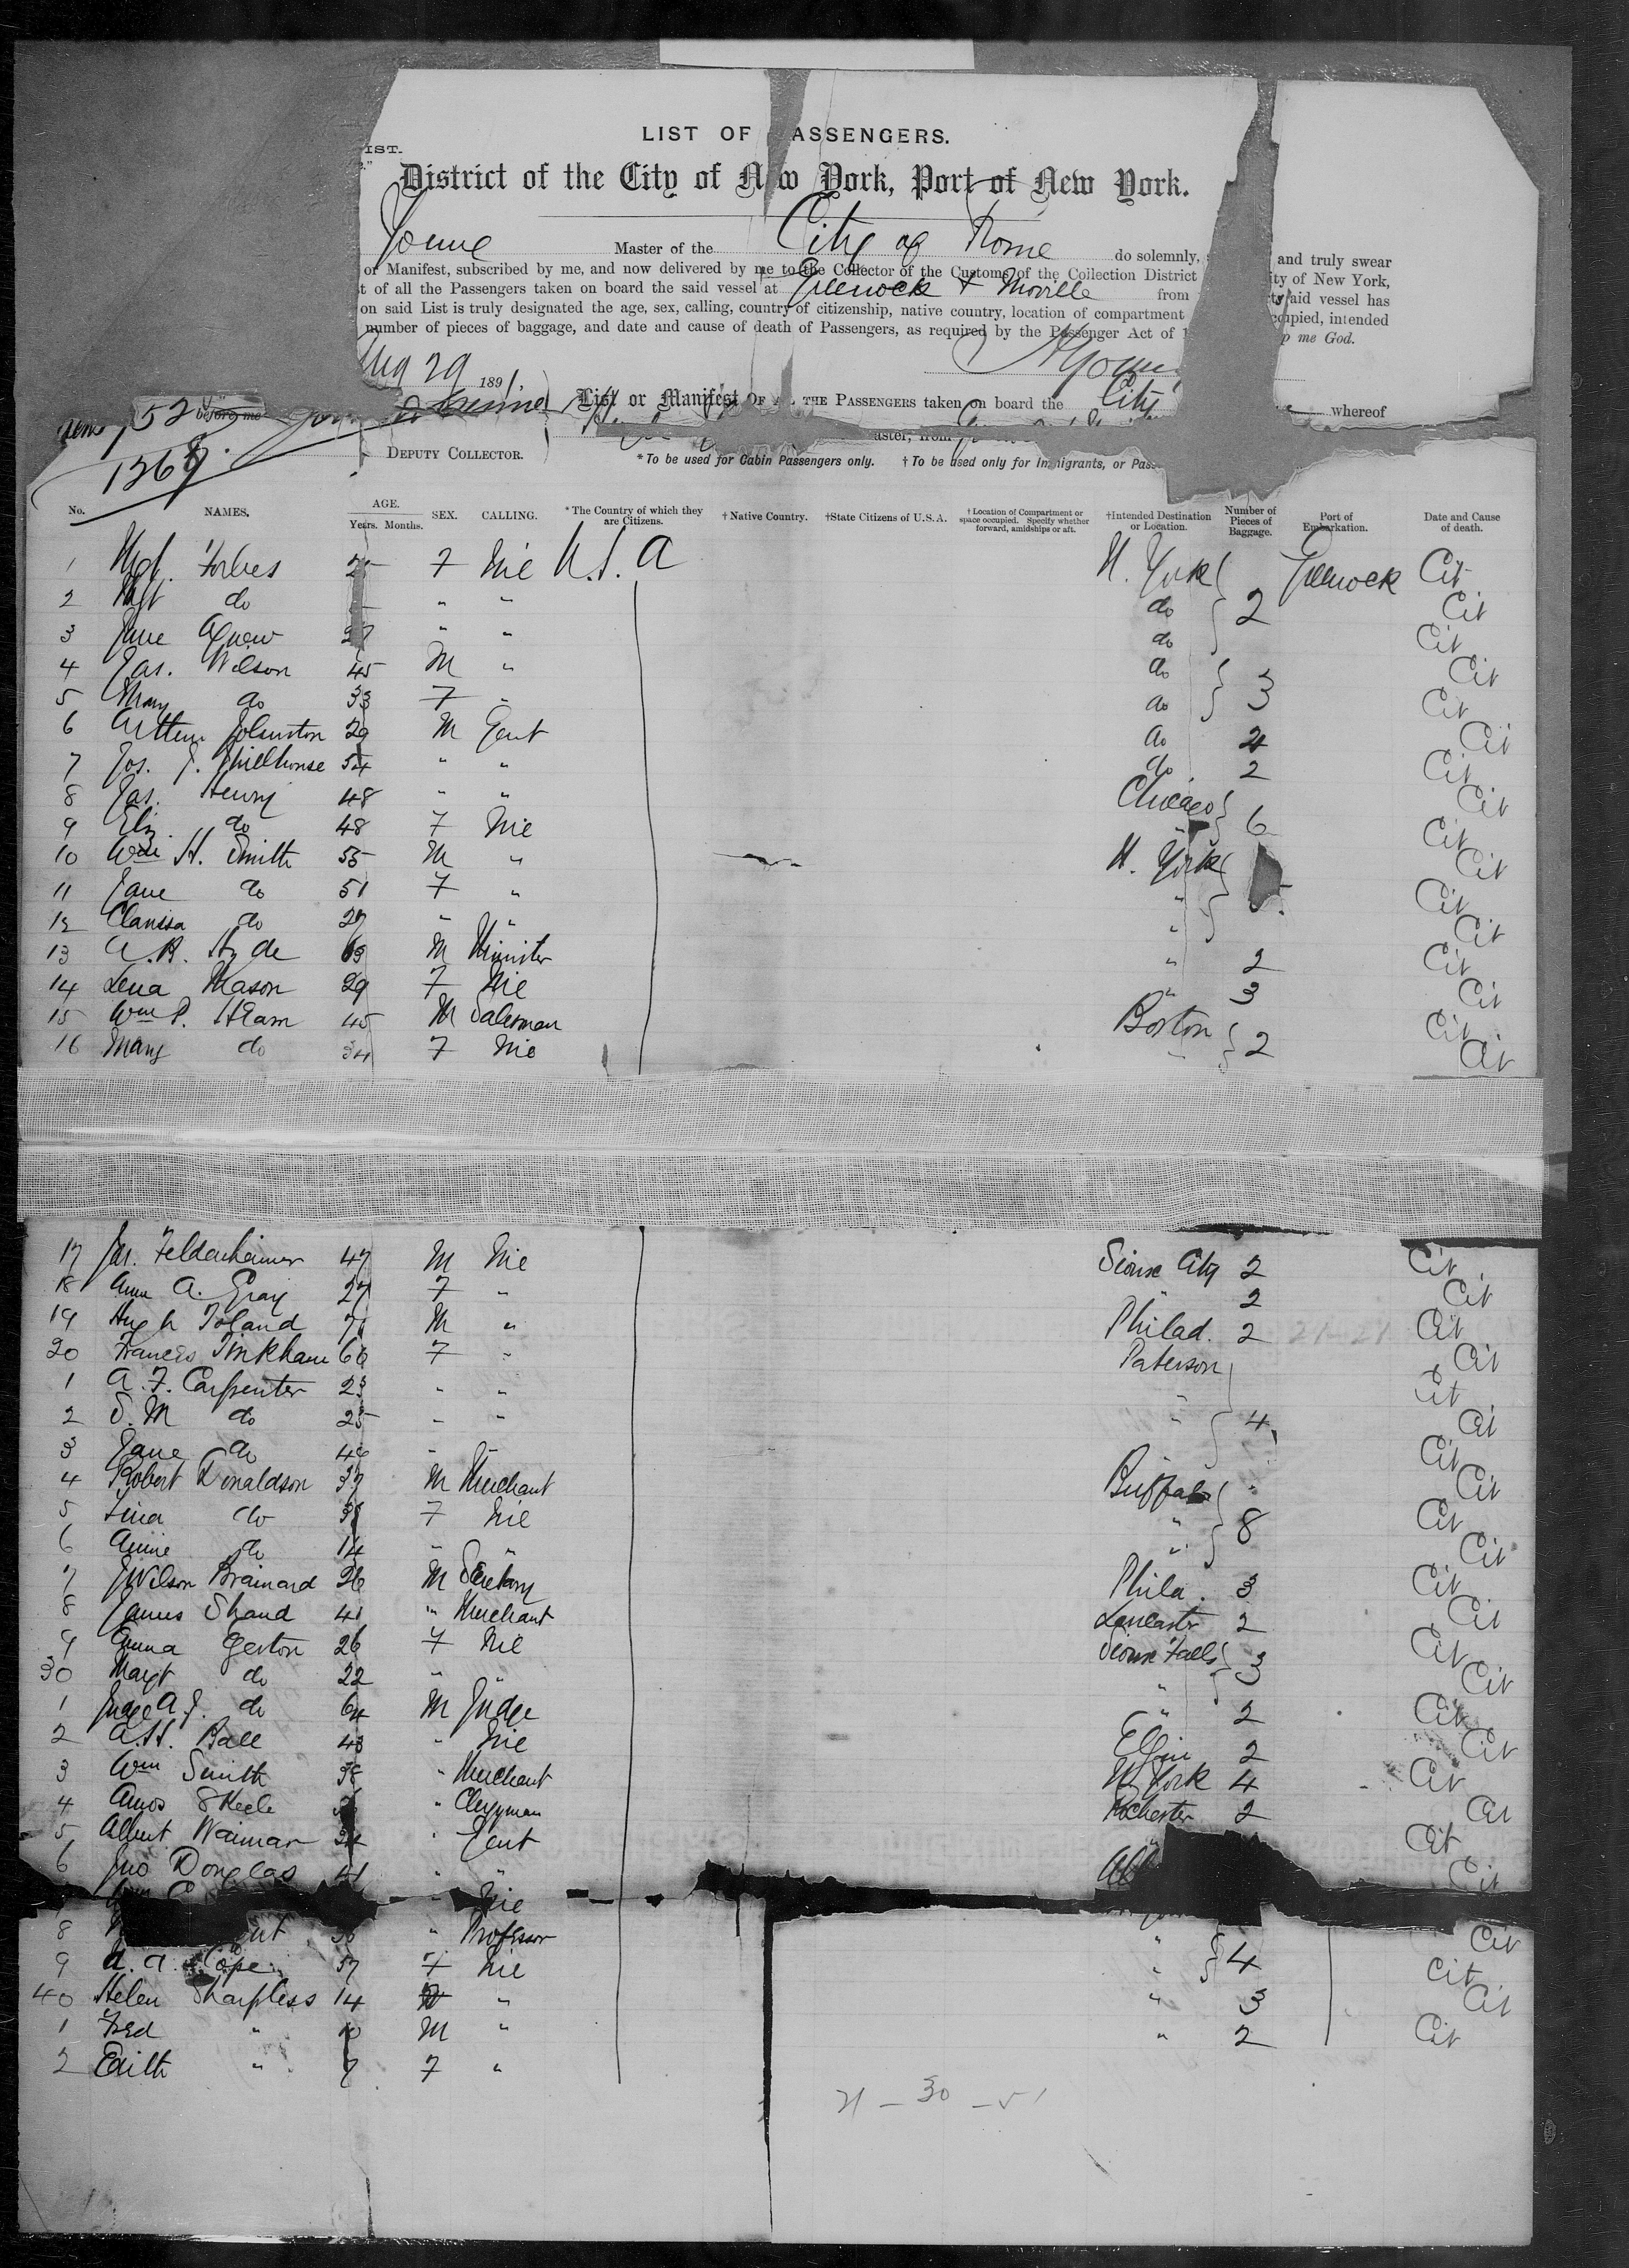 LIST OF PASSENGERS.
IST.
District of the City of New York, Port of New York.
Young Master of the City of Rome do solemnly, and truly swear
or Manifest, subscribed by me, and now delivered by me to the Collector of the Customs of the Collection District ity of New York,
t of all the Passengers taken on board the said vessel at Greenock & Moville from said vessel has
on said List is truly designated the age, sex, calling, country of citizenship, native country, location of compartment occupied, intended
number of pieces of baggage, and date and cause of death of Passengers, as required by the Passenger Act of 1 p me God.
Aug 29 1891. Young
before me List or Manifest OF ALL THE PASSENGERS taken on board the City whereof
52
DEPUTY COLLECTOR. aster, from
1268
*To be used for Cabin Passengers only. †To be used only for Immigrants, or Pass
No. NAMES. AGE. Years. Months. SEX. CALLING. *The Country of which they are Citizens. †Native Country. †State Citizens of U.S.A. †Location of Compartment or space occupied. Specify whether forward, amidships or aft. †Intended Destination or Location. Number of Pieces of Baggage. Port of Embarkation. Date and Cause of death.
1 Mgt. Forbes 25 F Nil U.S.A N. York Greenock Cit
2 Mgt do " " do 2 Cit
3 Jane Agnew 27 " " do Cit
4 Jas. Wilson 45 M " do 3 Cit
5 Mary do 33 F " do 3 Cit
6 Arthur Johnston 29 M Gent do 4 Cit
7 Jos. J. Millhouse 54 " " do 2 Cit
8 Jas. Henry 48 " " Chicago Cit
9 Eliz. do 48 F Nil " 6 Cit
10 Wm H. Smith 55 M " N. York Cit
11 Jane do 51 F " " Cit
12 Clarissa do 27 " " " Cit
13 A.B. Hyde 63 M Minister " 2 Cit
14 Lena Mason 29 F Nil " 3 Cit
15 Wm P. Ham 45 M Salesman Boston Cit
16 Mary do 34 F Nil " 2 Cit
17 Jas. Feldenheimer 47 M Nil Sioux City 2 Cit
18 Anna A. Gray 27 F " " 2 Cit
19 Hugh Toland 71 M " Philad. 2 21-21 Cit
20 Frances Tinkham 66 F " Paterson Cit
1 A.F. Carpenter 23 " " Cit
2 S.M do 25 " " " 4 Cit
3 Jane do 46 " " Cit
4 Robert Donaldson 37 M Merchant Buffalo Cit
5 Lina do 38 F Nil " 8 Cit
6 Annie do 14 " " " Cit
7 J Wilson Brainard 26 M Secretary Phila. 3 Cit
8 James Shand 41 " Merchant Lancaster 2 Cit
9 Emma Gerton 26 F Nil Sioux Falls 3 Cit
30 Margt do 22 " " Cit
1 Judge A.J. do 64 M Judge " 2 Cit
2 A.H. Ball 43 " Nil Elgin 2 Cit
3 Wm Smith 38 " Merchant N. York 4 Cit
4 Amos Skeele " Clergyman Rochester 2 Cit
5 Albert Waimar 34 " Gent Cit
6 Jno Douglas 41 " Cit
Nil
8 " Professor " Cit
9 A.A. Cope 57 F Nil " 4 Cit
40 Helen Sharpless 14 " " 3 Cit
1 Fred " 10 M " " 2 Cit
2 Edith " 7 F "
21 - 30 - 51